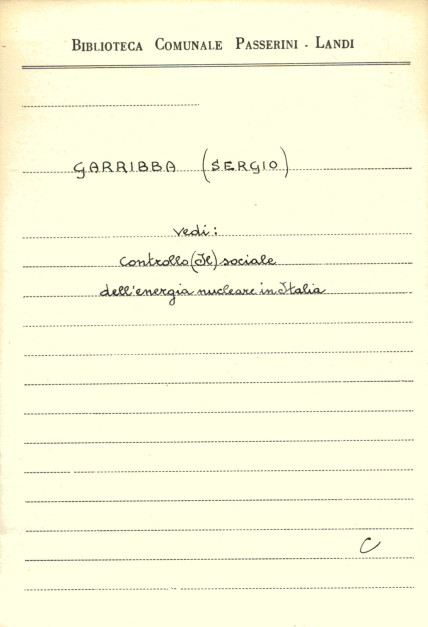 BIBLIOTECA COMUNALE PASSERINI - LANDI
GARRIBBA (SERGIO)
vedi:
Controllo (Il) sociale
dell'energia nucleare in Italia
C